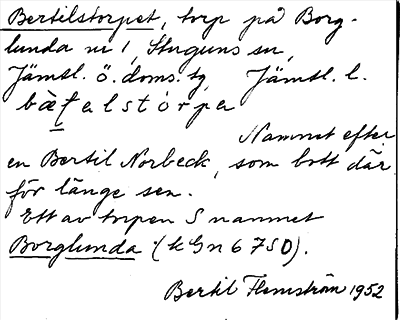 Bertilstorpet, torp på Borg-
lunda nr 1, Stuguns sn,
Jämtl. ö. doms. tg, Jämtl. l.
Namnet efter
en Bertil Norbeck, som bott där
för länge sen.
Ett av torpen S nammet
Borglunda (kGn 6 7SO).
Bertil Flemström 1952